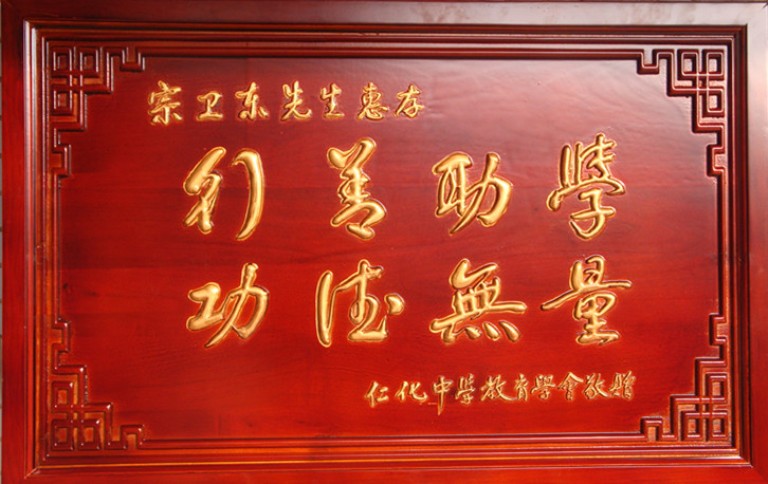 宗卫东先生惠存
行善助學
功德無量
仁化中学教育學會敬贈